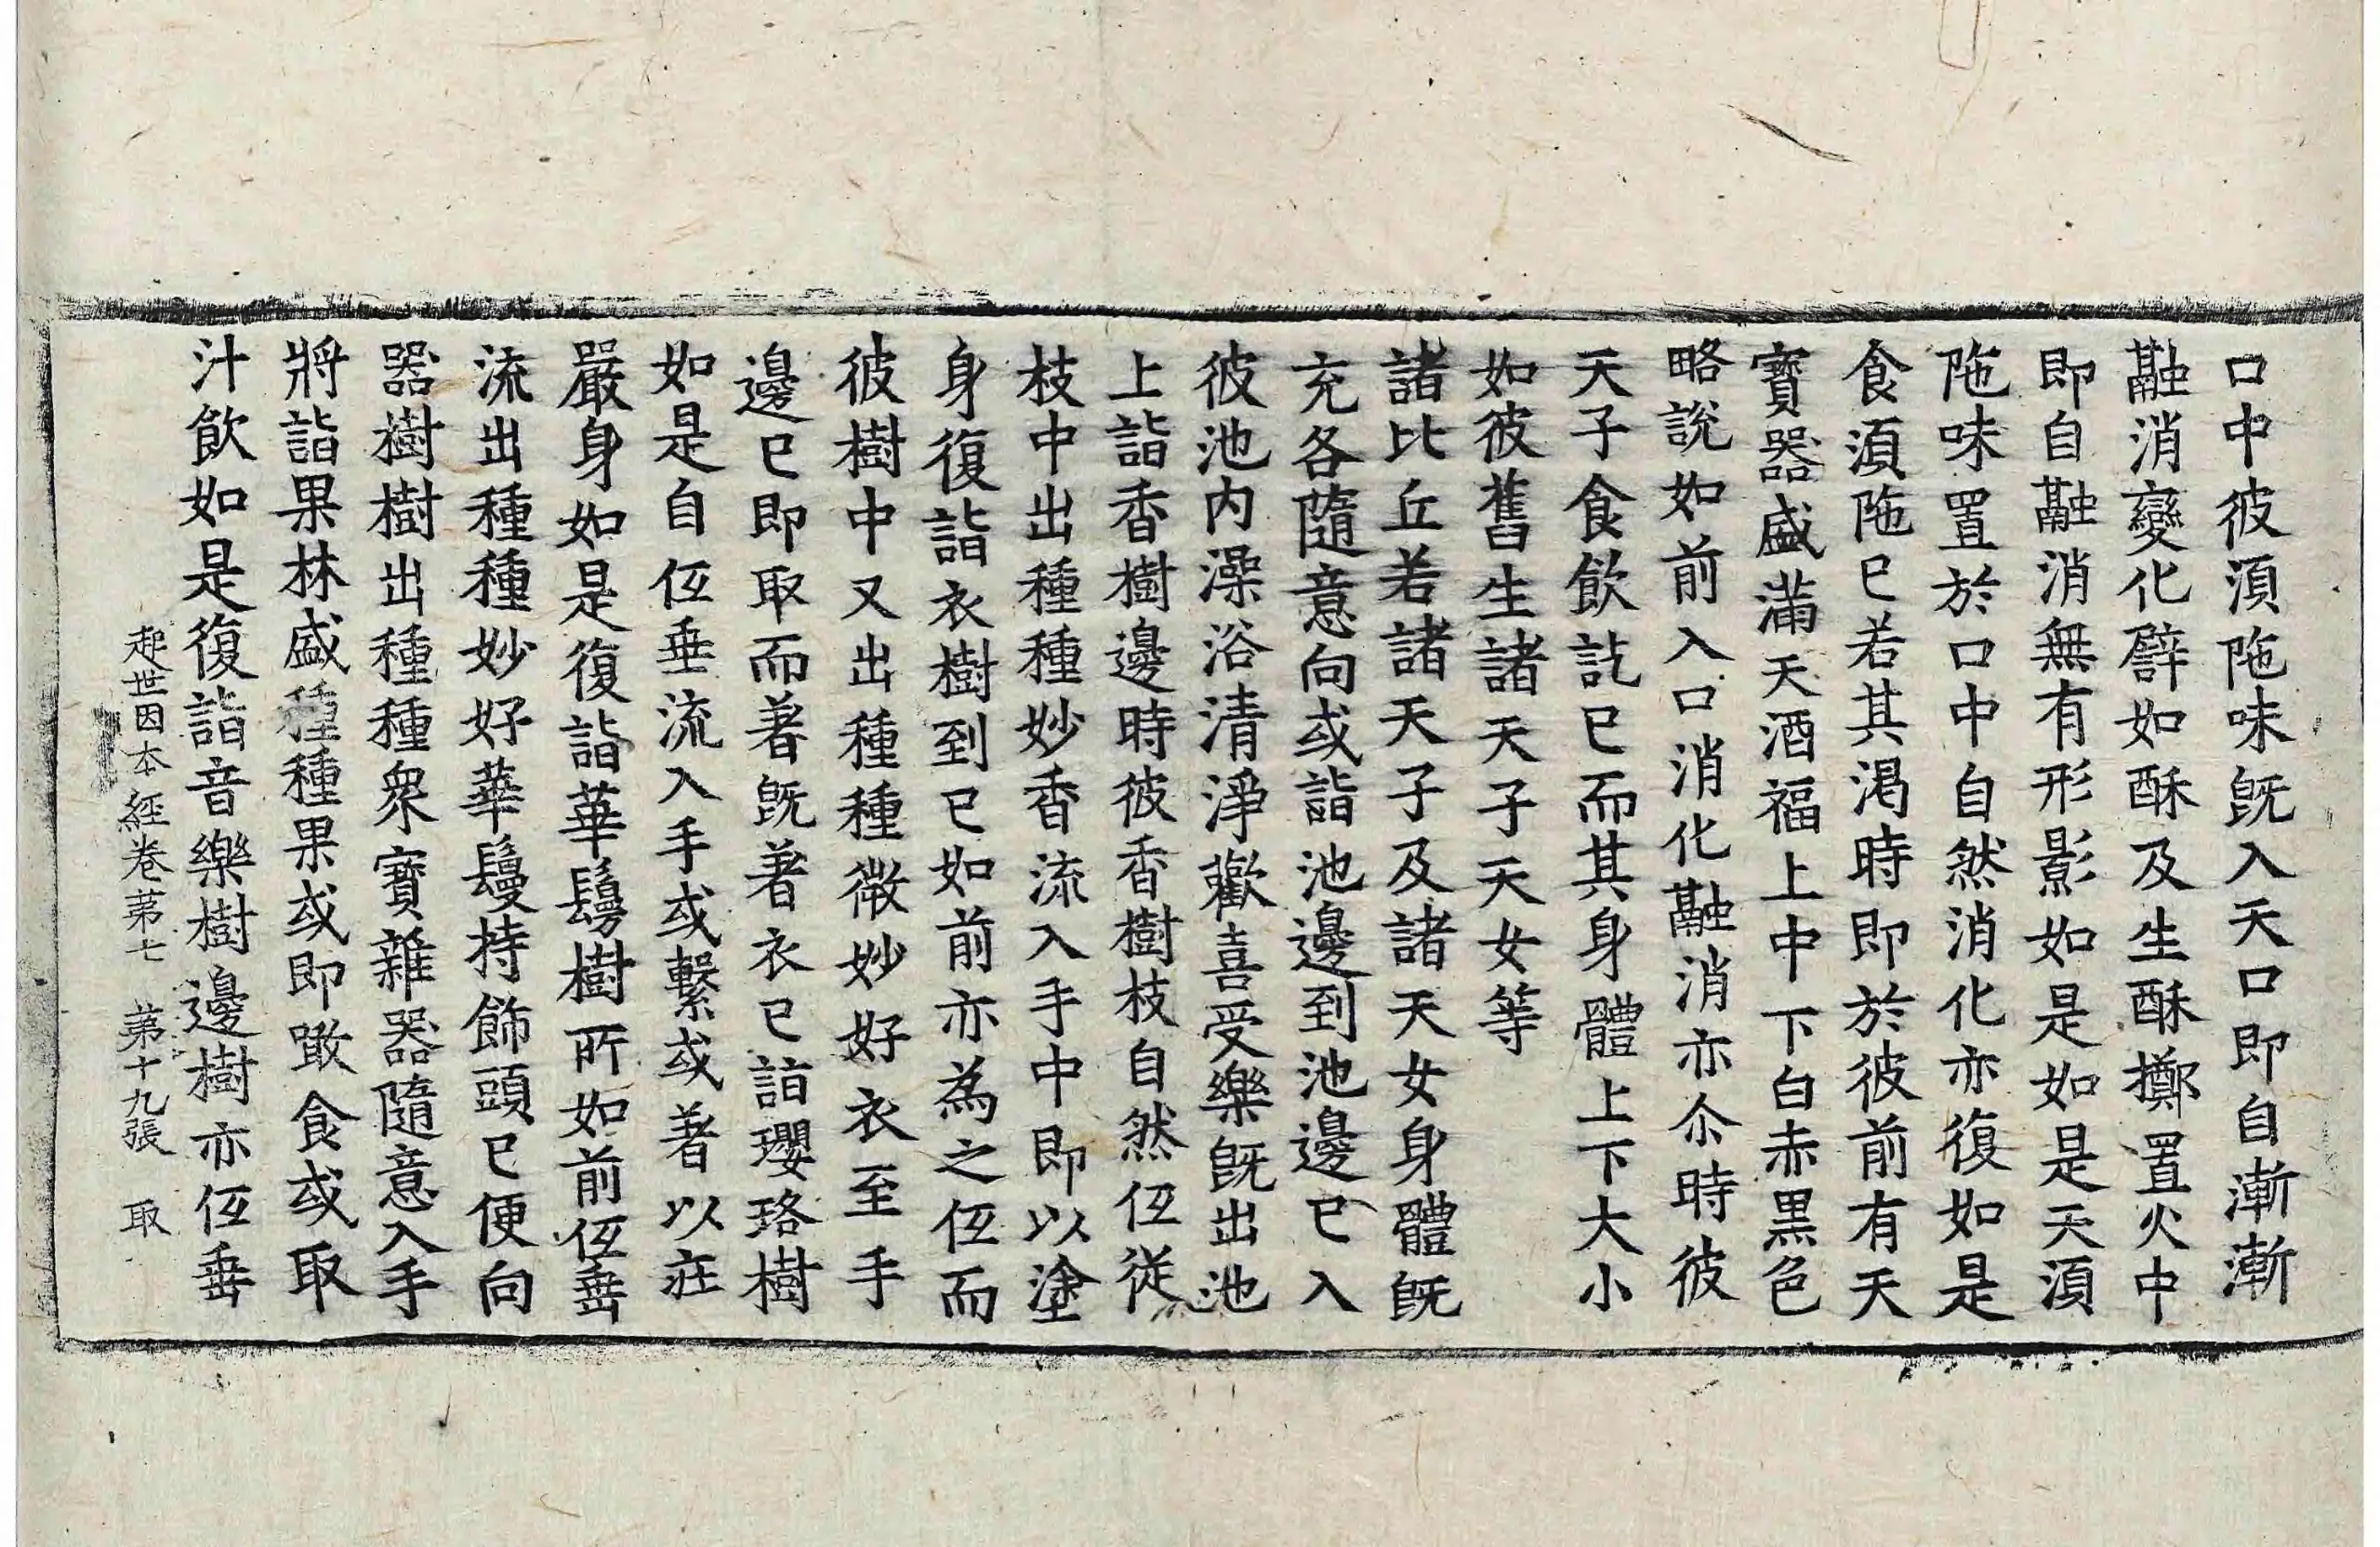 口中彼湏陁味旣入天口即自漸漸
融消變化譬如酥及生酥擲置火中
即自融消無有形影如是如是天湏
陁味置於口中自然消化亦復如是
食湏陁已若其渴時即於彼前有天
寶器盛滿天酒福上中下白赤黒色
略說如前入口消化融消亦尒時彼
天子食飮訖已而其身體上下大小
如彼舊生諸天子天女等
諸比丘若諸天子及諸天女身體旣
充各隨意向或詣池邊到池邊已入
彼池内澡浴清淨歡喜受樂旣出池
上詣香樹邊時彼香樹枝自然仾從
枝中出種種妙香流入手中即以塗
身復詣衣樹到已如前亦為之仾而
彼樹中又出種種微妙好衣至手
邊已即取而著旣著衣已詣瓔珞樹
如是自仾垂流入手或繫或著以莊
嚴身如是復詣華鬘樹所如前仾垂
流出種種妙好華鬘持飾頭已便向
器樹樹出種種衆寶雜器隨意入手
將詣果林盛種種果或即噉食或取
汁飮如是復詣音樂樹邊樹亦仾垂
起世因本經卷第七 第十九張 取